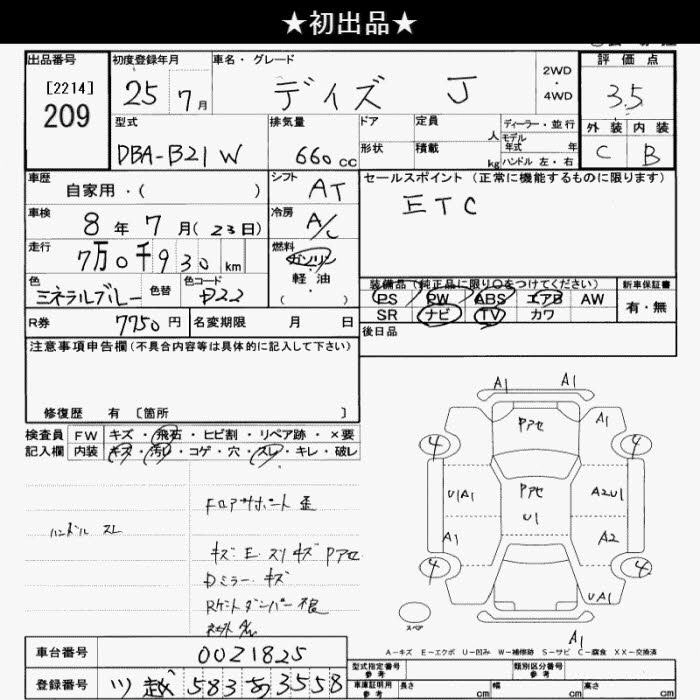 ★初出品★
出品番号 初度登録年月 車名・グレード 評価点
[2214] 25 7月 デイズ J 2WD・4WD 3.5
209
型式 排気量 ドア 定員 人 ディーラー・並行 外装 内装
DBA-B21W 660cc 形状 積載 kg モデル年式 年 C B
ハンドル 左・右
車歴 シフト セールスポイント(正常に機能するものに限ります)
自家用・( ) AT ETC
車検 8年7月(23日) 冷房 A/C
走行 7万0千930km 燃料 ガソリン
軽油
( )
色 ミネラルブルー 色替 色コード
装備品(純正品に限り○をつけてください) 新車保証書
PS PW ABS エアB AW 有・無
SR ナビ TV カワ
R券 7750円 名変期限 月 日 後日品
注意事項申告欄(不具合内容等は具体的に記入して下さい)
修復歴 有 〔箇所 〕
検査員 FW キズ・飛石・ヒビ割・リペア跡・×要
記入欄 内装 キズ・汚れ・コゲ・穴・スレ・キレ・破レ
ハンドル スレ
Fロアサポート 歪
キズ・E・スリキズ Pアセ
Dミラー キズ
A1 A1
4 Pアセ A1 4
UIA1 Pアセ U1 A2U1
A1 A2
4 4
UA1
スペア A1
A−キズ E−エクボ U−凹み W−補修跡 S−サビ C−腐食 XX−交換済
車台番号 0021825
登録番号 川越 583 あ 3558
型式指定番号 参考 類別区分番号 参考
車庫証明用 参考 長さ cm 幅 cm 高さ cm